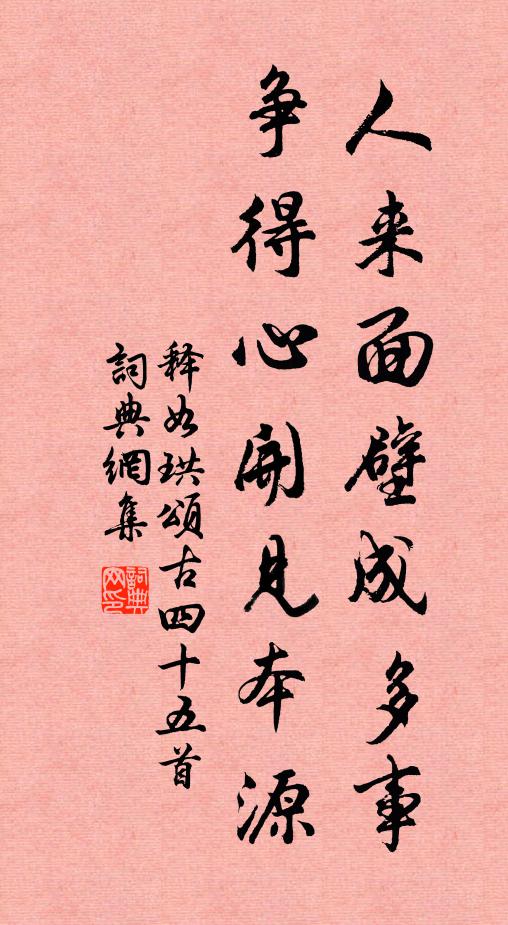 人来面壁成多事
争得心开見本源
释如珙頌古四十五首
詞典網集
詞典网印